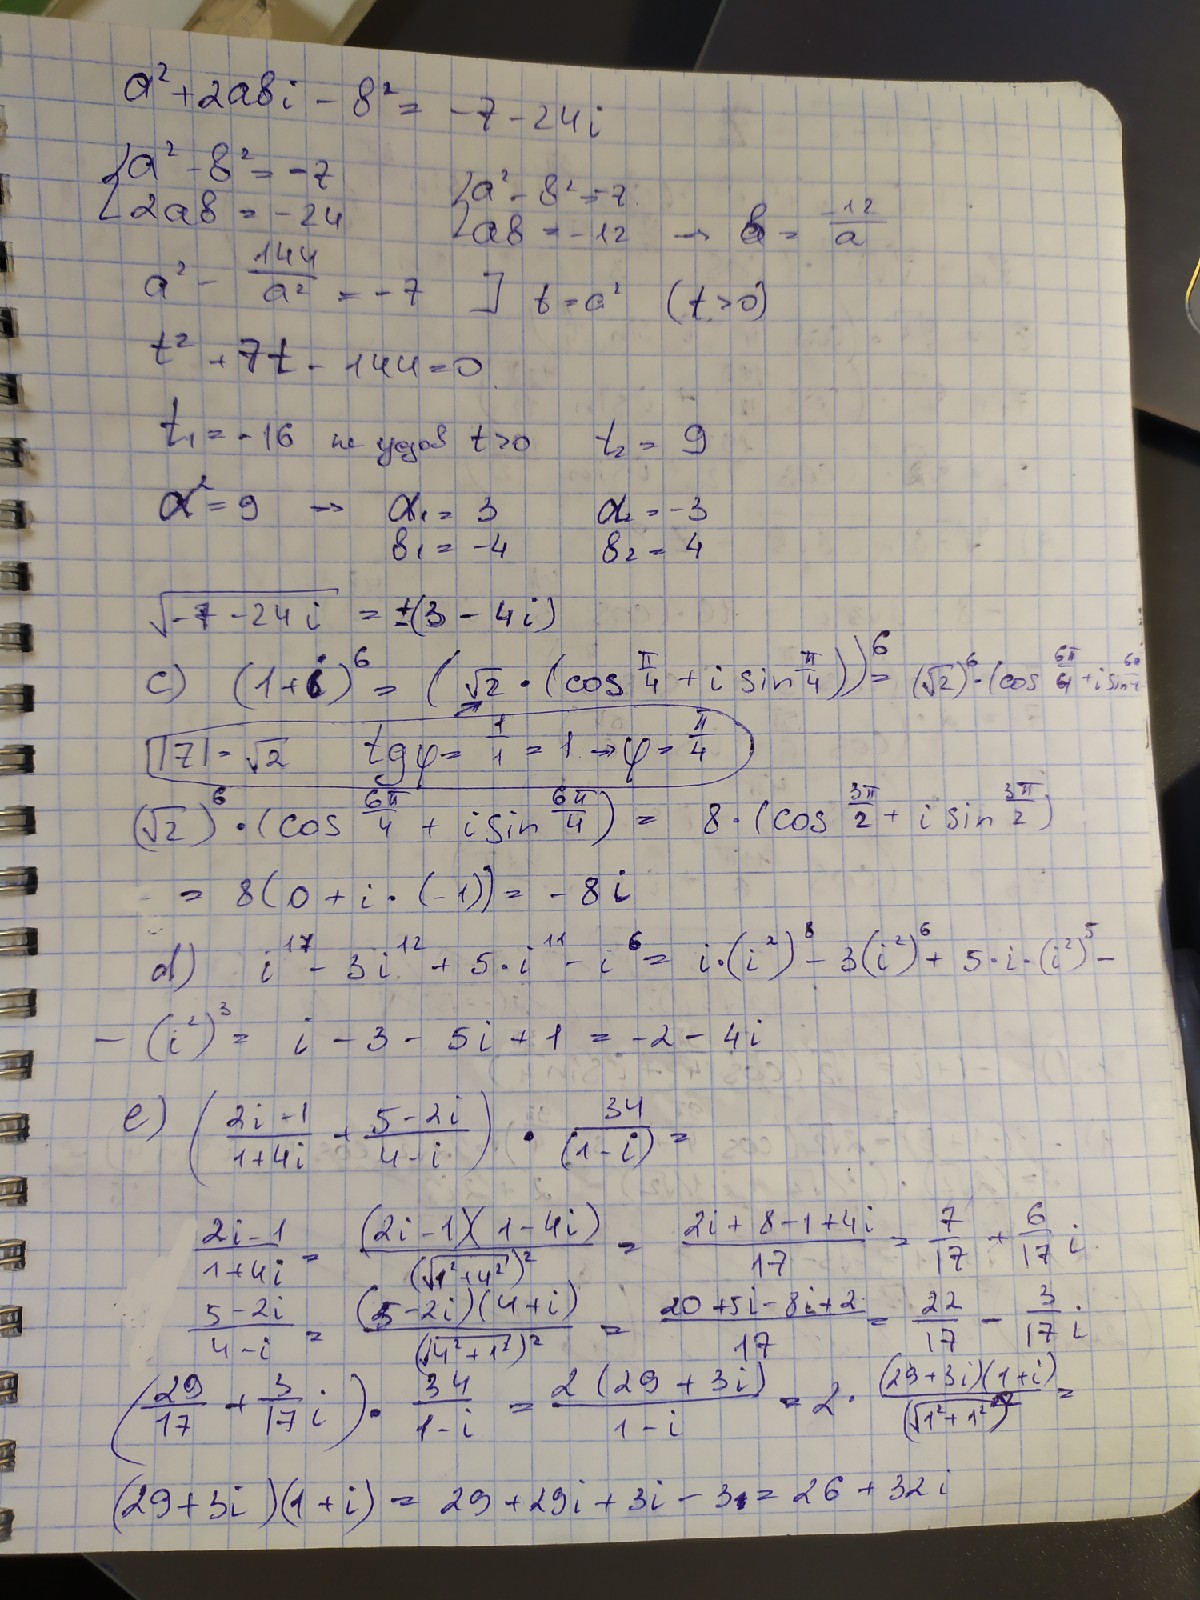 a² + 2abi - b² = -7 - 24i
{a² - b² = -7 {a² - b² = -7
{2ab = -24 {ab = -12 → b = -12/a
a² - 144/a² = -7 ] t = a² (t > 0)
t² + 7t - 144 = 0
t₁ = -16 не удов t>0 t₂ = 9
a² = 9 → a₁ = 3 a₂ = -3
b₁ = -4 b₂ = 4
√(-7 - 24i) = ±(3 - 4i)
c) (1+i)⁶ = (√2 · (cos π/4 + i sin π/4))⁶ = (√2)⁶ · (cos 6π/4 + i sin 6π/4
|z| = √2 tg φ = 1/1 = 1 → φ = π/4
(√2)⁶ · (cos 6π/4 + i sin 6π/4) = 8 · (cos 3π/2 + i sin 3π/2)
= 8(0 + i · (-1)) = -8i
d) i¹⁷ - 3i¹² + 5·i¹¹ - i⁶ = i·(i²)⁸ - 3(i²)⁶ + 5·i·(i²)⁵ -
- (i²)³ = i - 3 - 5i + 1 = -2 - 4i
e) ((2i-1)/(1+4i) + (5-2i)/(4-i)) · 34/(1-i) =
(2i-1)/(1+4i) = (2i-1)(1-4i)/(√(1²+4²))² = (2i+8-1+4i)/17 = 7/17 + 6/17 i
(5-2i)/(4-i) = (5-2i)(4+i)/(√(4²+1²))² = (20+5i-8i+2)/17 = 22/17 - 3/17 i
(29/17 + 3/17 i) · 34/(1-i) = 2(29+3i)/(1-i) = 2 · (29+3i)(1+i)/(√(1²+1²))² =
(29+3i)(1+i) = 29 + 29i + 3i - 3 = 26 + 32i